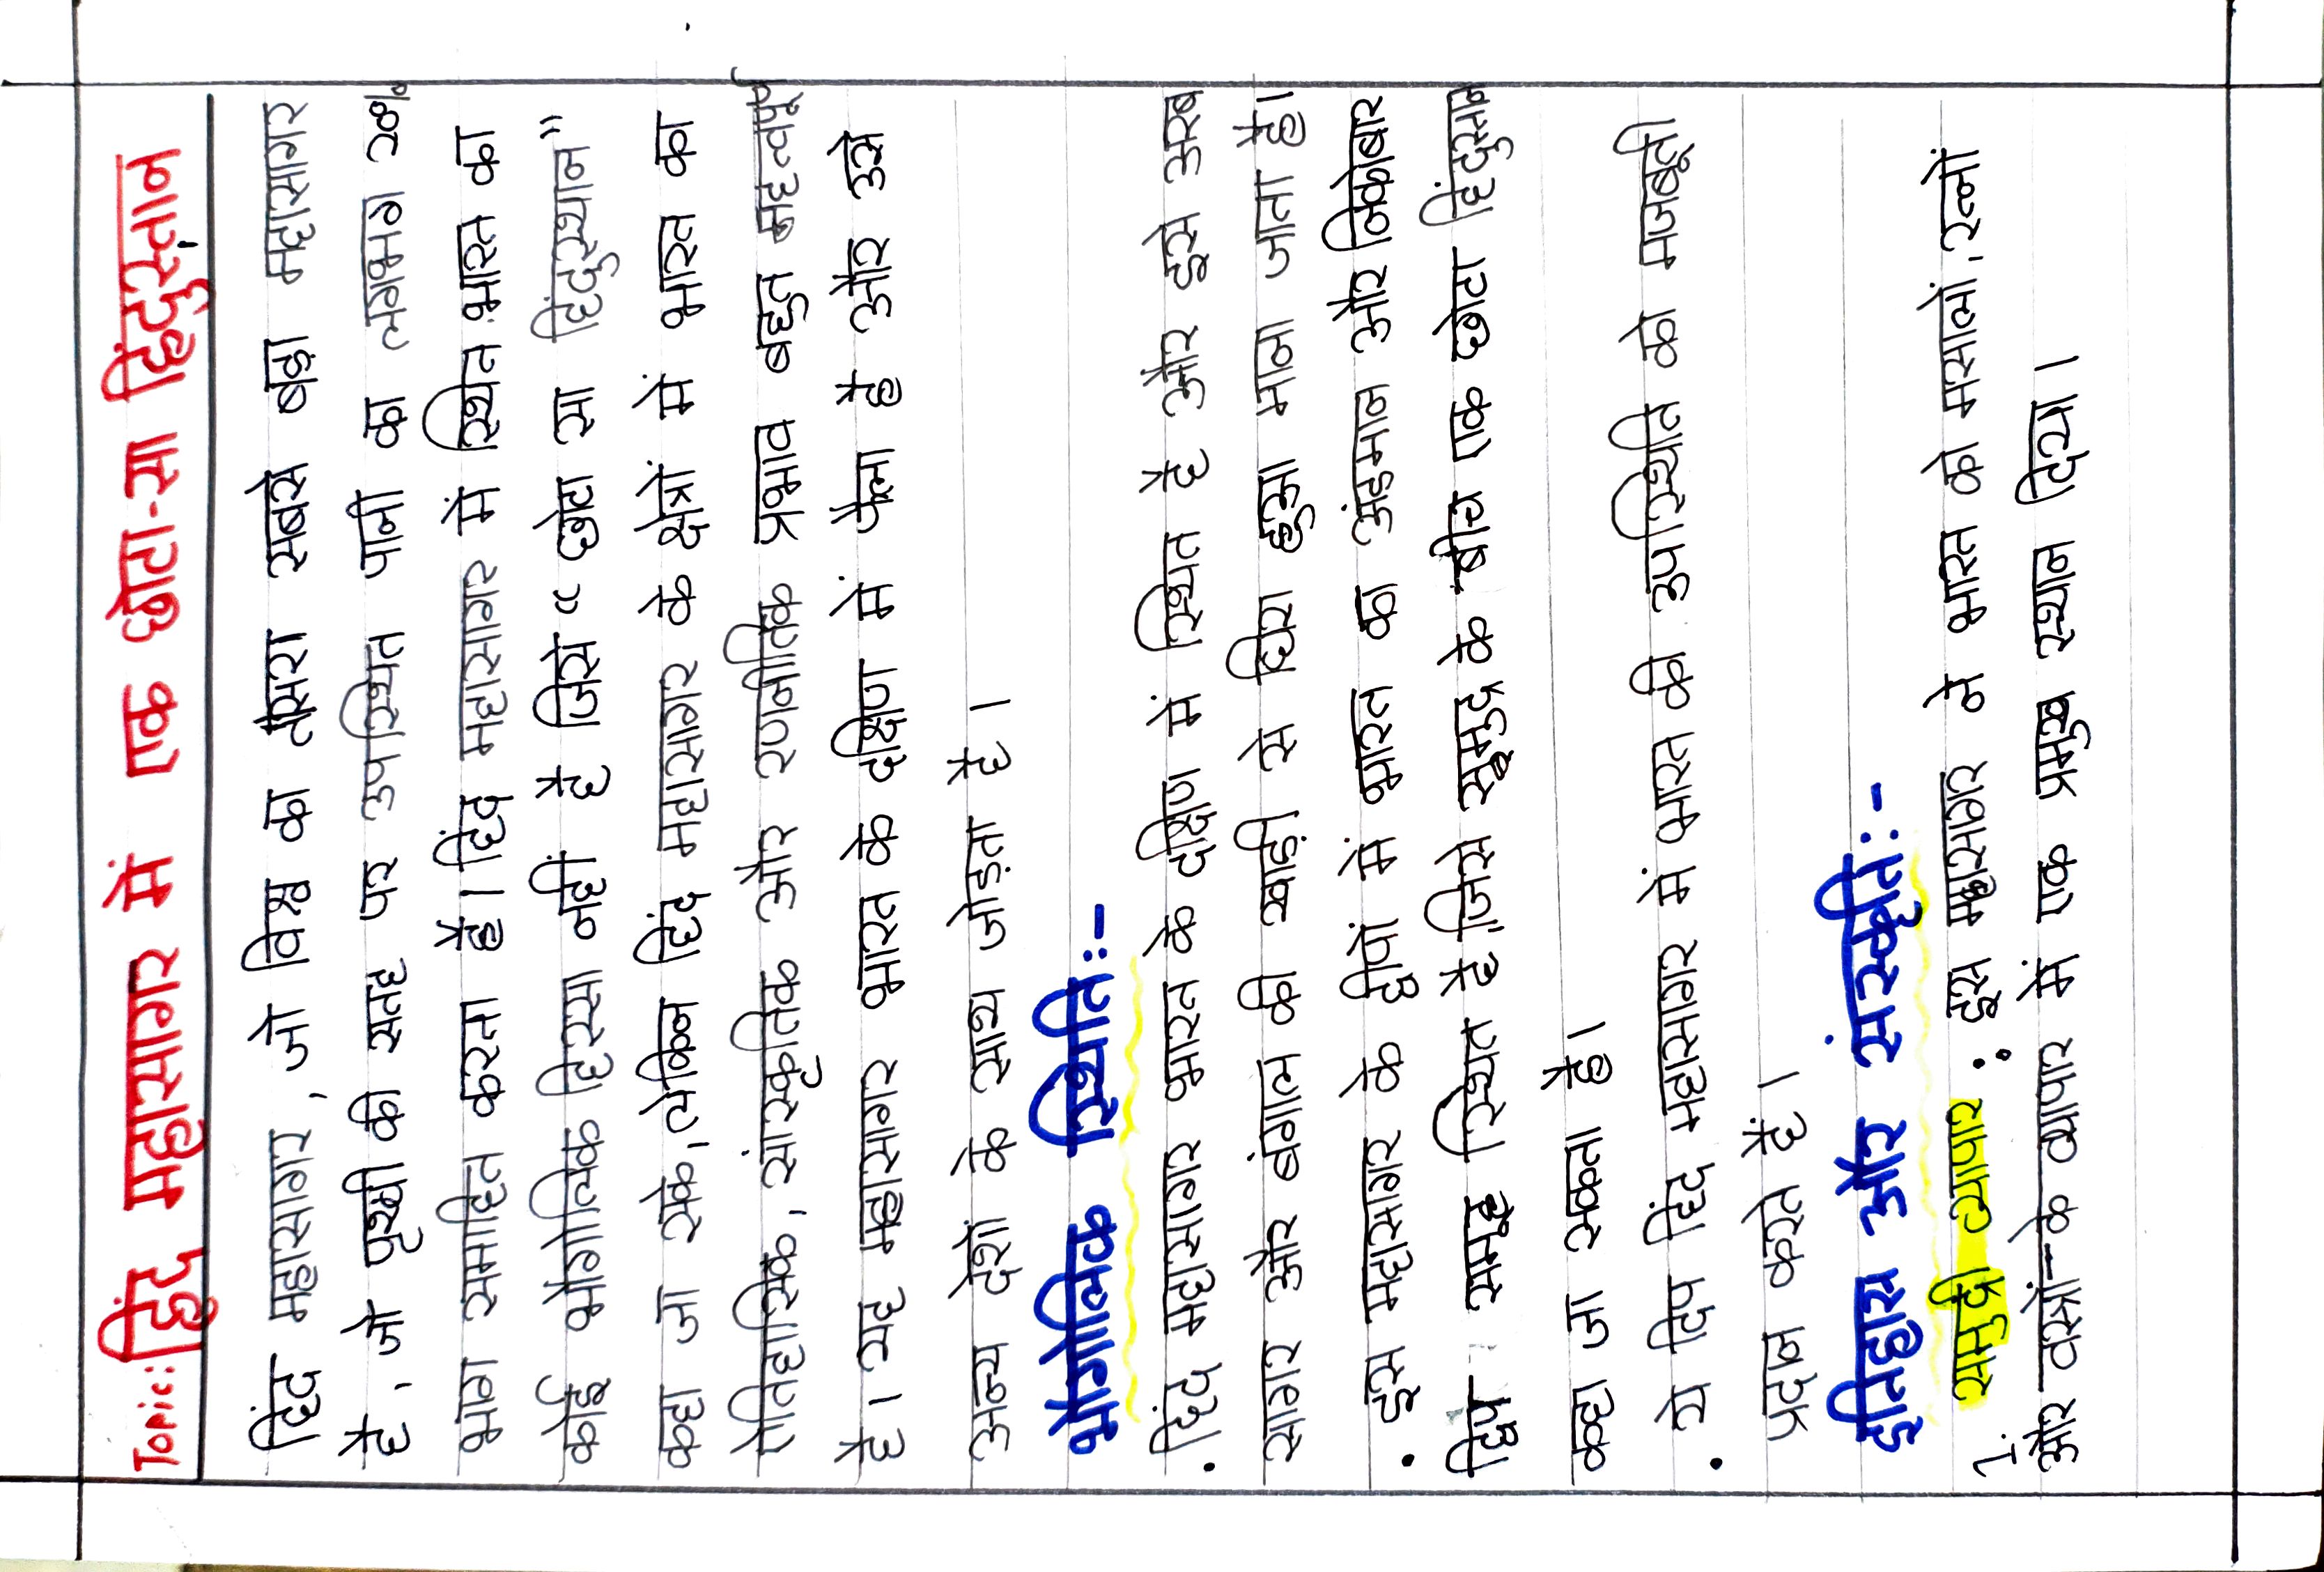 Topic: हिंद महासागर में एक छोटा-सा हिंदुस्तान
हिंद महासागर, जो विश्व का तीसरा सबसे बड़ा महासागर
है, जो पृथ्वी की सतह पर उपस्थित पानी का लगभग 20%
भाग समाहित करता है। हिंद महासागर में स्थित भारत का
कोई भौगोलिक हिस्सा नहीं है जिसे "छोटा सा हिंदुस्थान"
कहा जा सके, लेकिन हिंद महासागर के क्षेत्रों में भारत का
ऐतिहासिक, सांस्कृतिक और रणनीतिक प्रभाव बहुत महत्वपूर्ण
है। यह महासागर भारत के दक्षिण में फैला है और उसे
अन्य देशों के साथ जोड़ता है।
भौगोलिक स्थिति:-
. हिंद महासागर भारत के दक्षिण में स्थित है और इसे अरब
सागर और बंगाल की खाड़ी से घिरा हुआ माना जाता है।
. इस महासागर के द्वीपों में भारत का अंडमान और निकोबार
द्विप समूह स्थित है, जिसे समुद्र के बीच एक छोटा हिंदुस्तान
कहा जा सकता है।
. ये दिप हिंद महासागर में भारत की उपस्थिति को मजबूती
प्रदान करते हैं।
इतिहास और संस्कृति:-
1. समुद्री व्यापार : इस महासागर ने भारत को मसालों, रत्नों
और वस्त्रों के व्यापार में एक प्रमुख स्थान दिया।